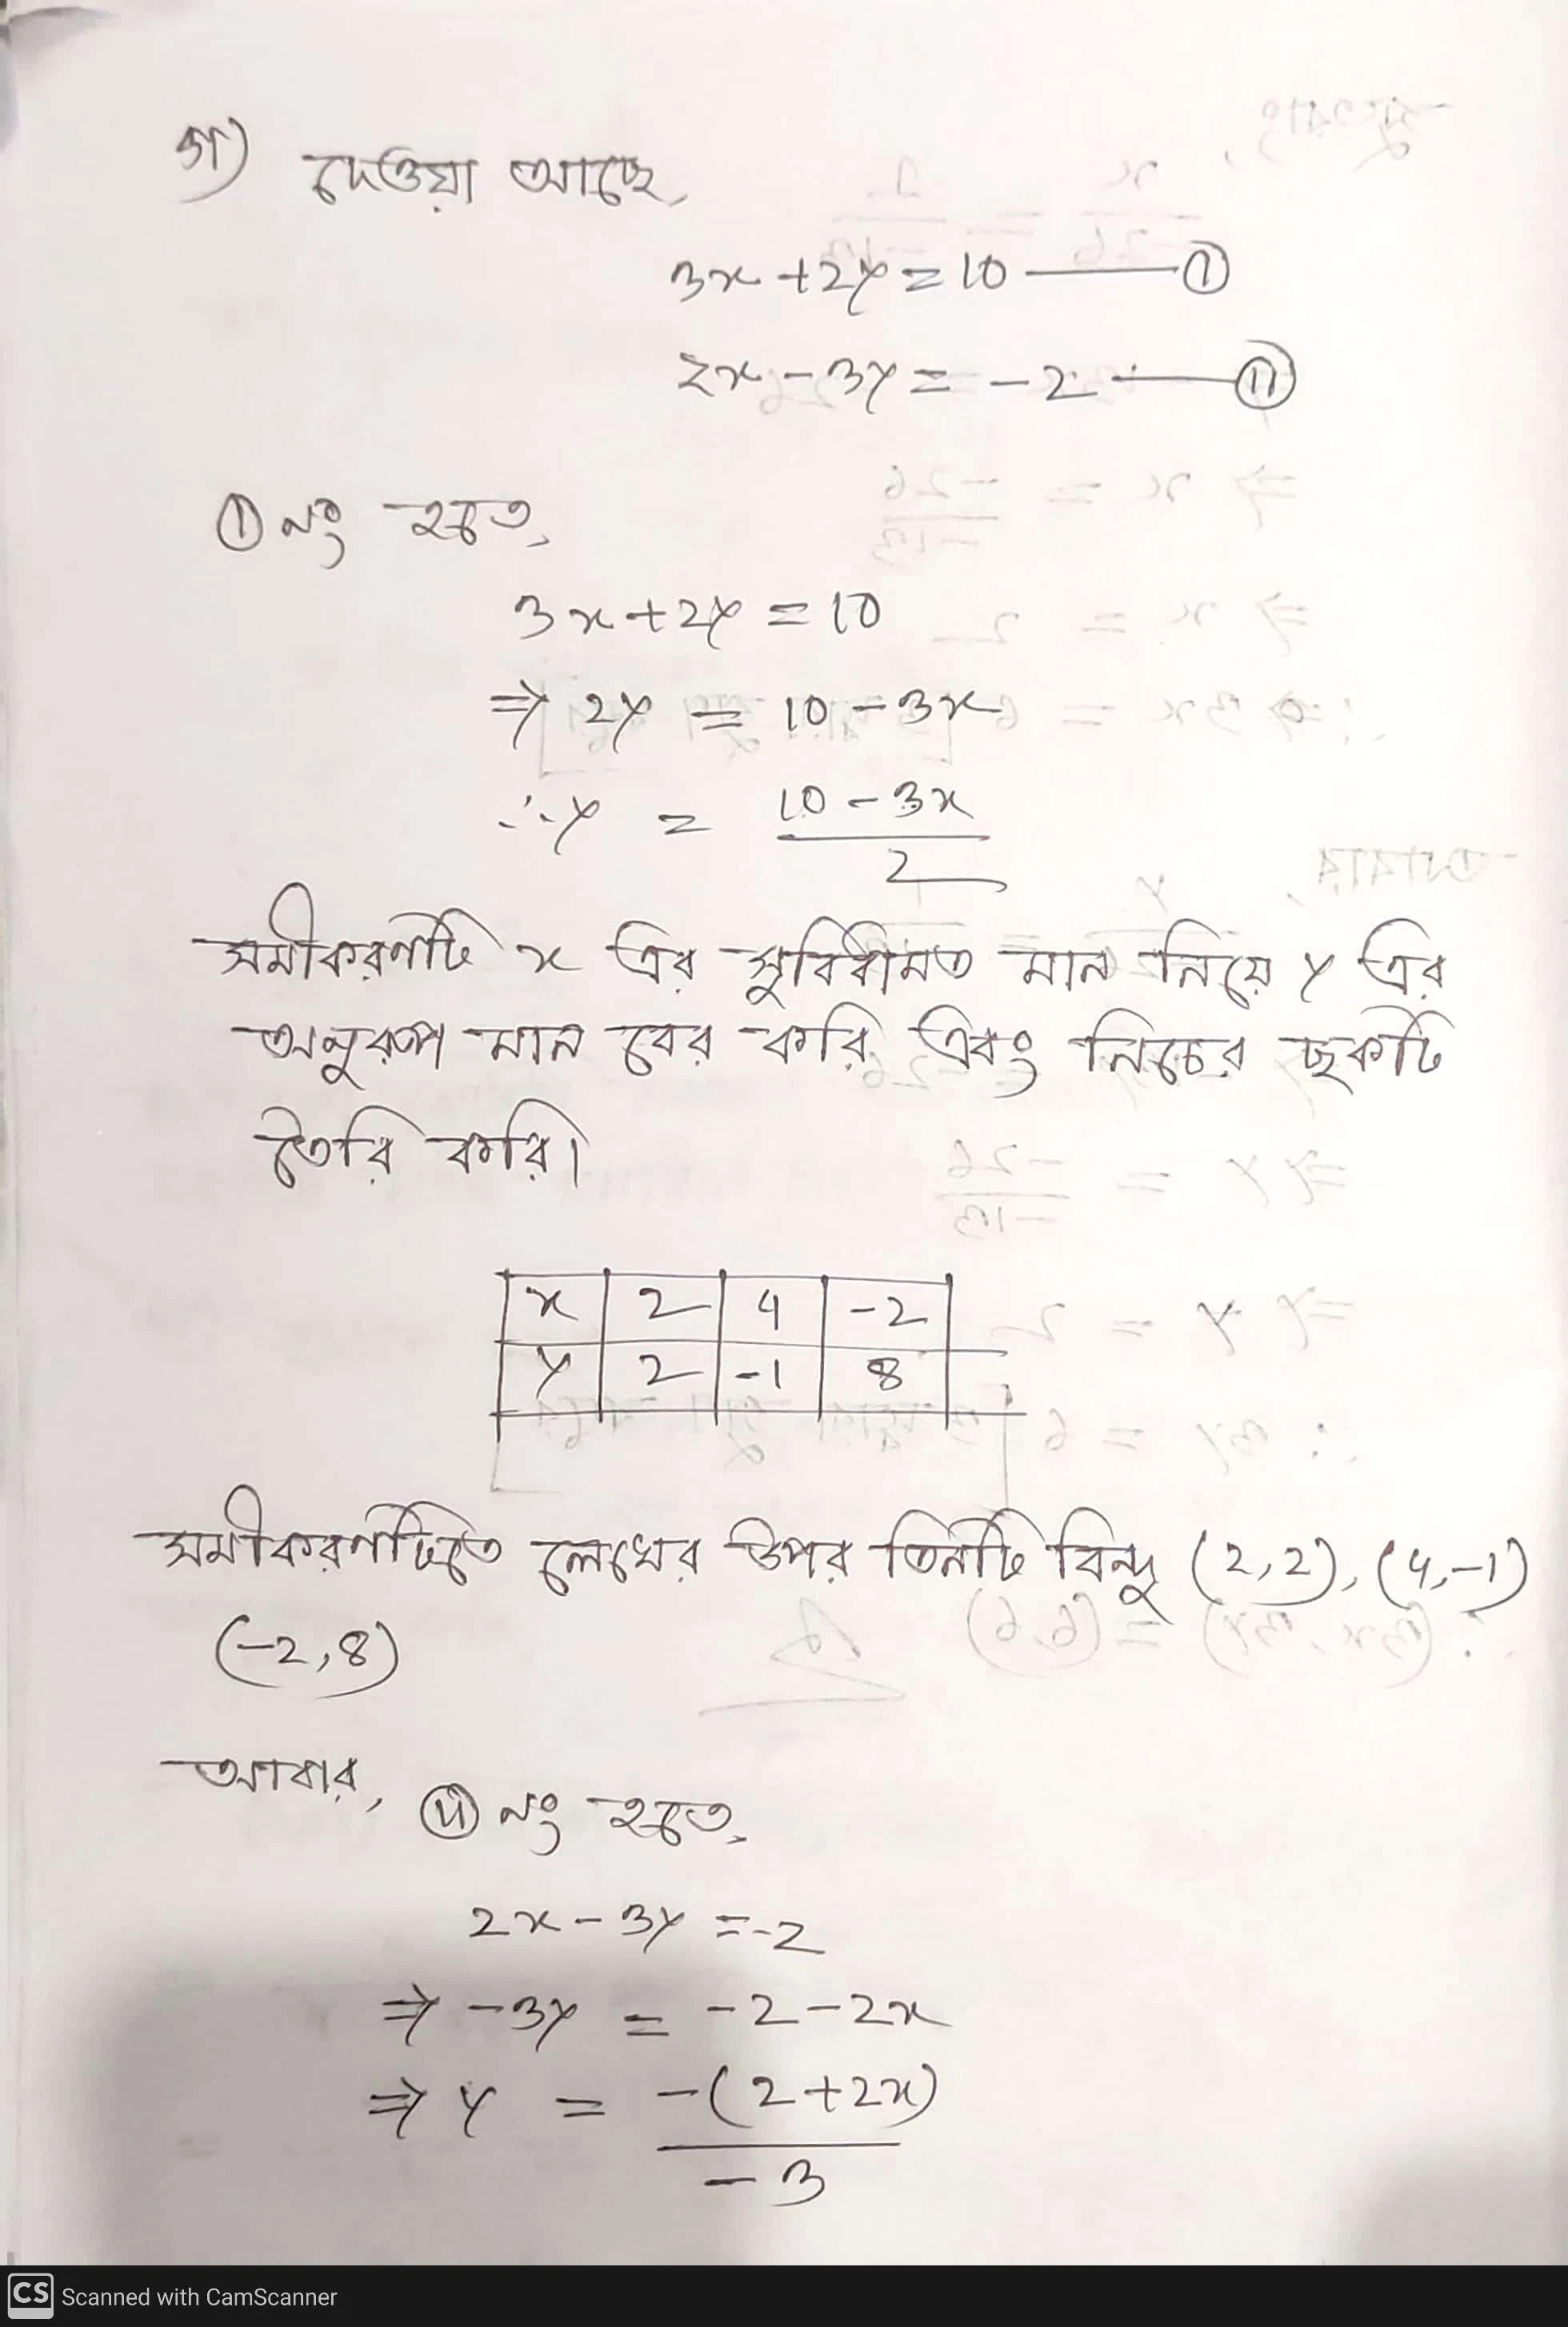 গ) দেওয়া আছে,
3x + 2y = 10 ——— ①
2x - 3y = -2 ——— ⑪
① নং হতে,
3x + 2y = 10
⇒ 2y = 10 - 3x
∴ y = 10 - 3x / 2
সমীকরণটি x এর সুবিধামত মান নিয়ে y এর
অনুরূপ মান বের করি এবং নিচের ছকটি
তৈরি করি।
x 2 4 -2
y 2 -1 8
সমীকরণটিতে লেখের উপর তিনটি বিন্দু (2,2), (4,-1)
(-2,8)
আবার, ⑪ নং হতে,
2x - 3y = -2
⇒ -3y = -2 - 2x
⇒ y = -(2+2x) / -3
CS Scanned with CamScanner